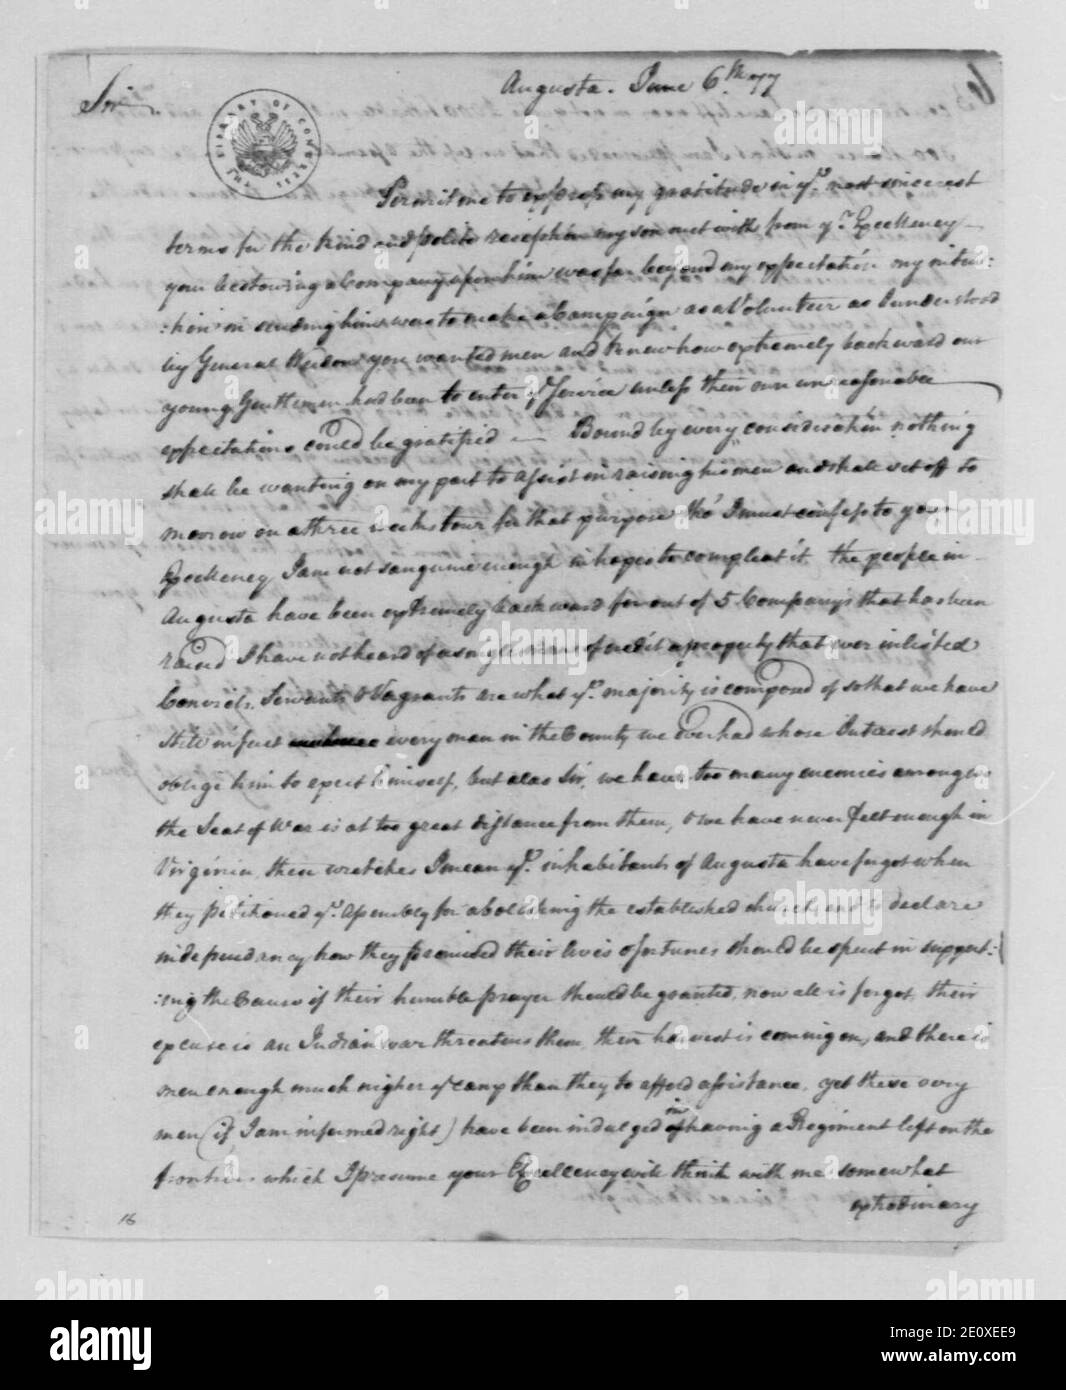 Augusta. June 6.th 77
Sir
Permit me to express my gratitude in ye. most sincerest
terms for the kind and polite reception my son met with from yr. Exelleney
your bestowing a Company upon him was far beyond my expectation my inten:
:tion in sending him was to make a Campaign as a Volunteer as I understood
by General Weedon you wanted men and knew how extremely backward our
young Gentlemen had been to enter ye Service unless their own unreasonable
expectations could be gratified — Bound by every consideration nothing
shall be wanting on my part to assist in raising his men and shall set off to
morrow on a three weeks tour for that purpose tho' I must confess to your
Exelleney I am not sanguine enough in hopes to compleat it. the people in
Augusta have been extremely backward for out of 5 Companys that has been
raised I have not heard of a single man of credit or property that ever inlisted
Convicts, Servants & Vagrants are what ye. majority is compos'd of so that we have
still in fact every man in the County we ever had whose Interest should
oblige him to exert himself, but alas Sir, we have too many enemies among us
the Seat of War is at too great distance from them, & we have never felt enough in
Virginia, these wretches I mean ye. inhabitants of Augusta have forgot when
they petitioned ye. Assembly for abolishing the established church and to declare
independancy how they promised their lives & fortunes should be spent in support:
:ing the Cause if their humble prayer should be granted, now all is forgot, their
excuse is an Indian war threatens them, their harvest is coming on, and there is
men enough much nigher ye camp than they to afford assistance, yet these very
men (if I am informed right) have been indulged in having a Regiment left on the
frontiers which I presume your Excelleney will think with me somewhat
extrodinary
16
THE LIBRARY OF CONGRESS
alamy
alamy
Image ID: 2E0XEE9
www.alamy.com